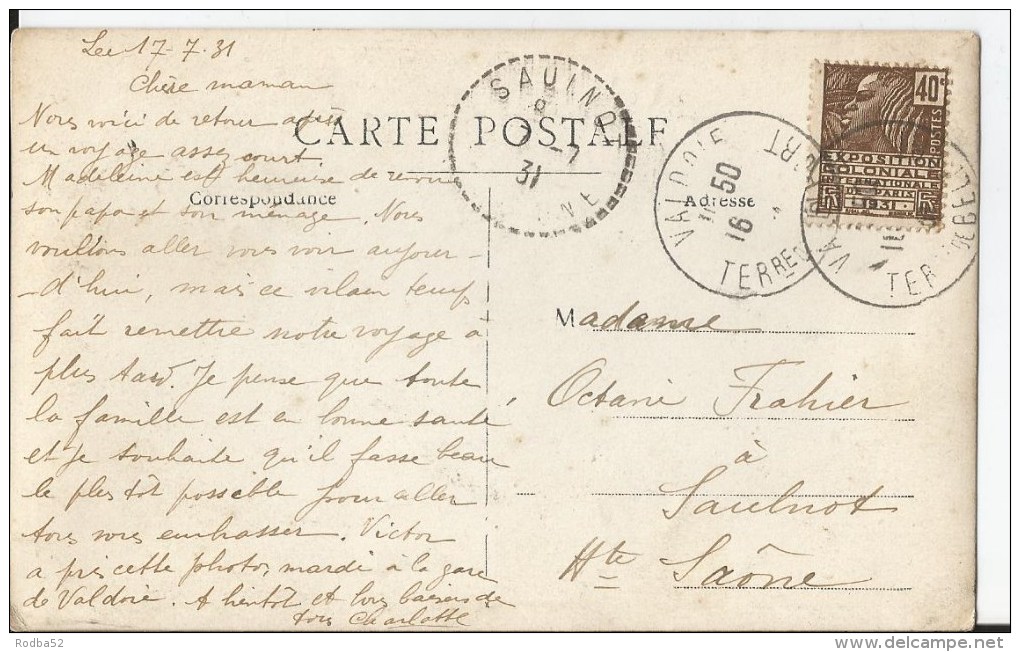 Le 17-7-31
Chère maman
CARTE POSTALE
Nous voici de retour après
un voyage assez court.
Madeleine est heureuse de revoir
Correspondance
son papa et son ménage. Nous
voulions aller vous voir aujour-
-d'hui, mais ce vilain temps
fait remettre notre voyage à
plus tard. Je pense que toute
la famille est en bonne santé
et je souhaite qu'il fasse beau
le plus tôt possible pour aller
tous vous embrasser. Victor
a pris cette photo, mardi à la gare
de Valdoie. A bientôt et bons baisers de
tous Charlotte
SAULNO
31
VALDOIE
11 50
16
TERRE
ORT
Adresse
40c
POSTES
EXPOSITION
COLONIALE
INTERNATIONALE
DE PARIS
1931
Madame
Octavie Frahier
à
Saulnot
Hte Saône
Rodba52
www.delcampe.net